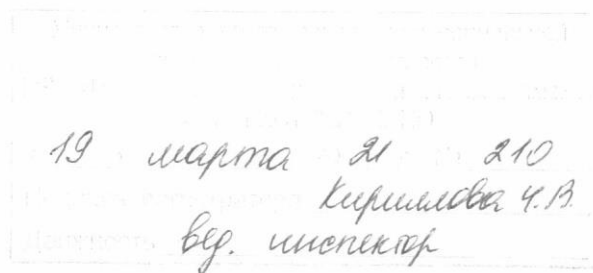 19 марта 21 210
Кириллова Ч.В.
вед. инспектор